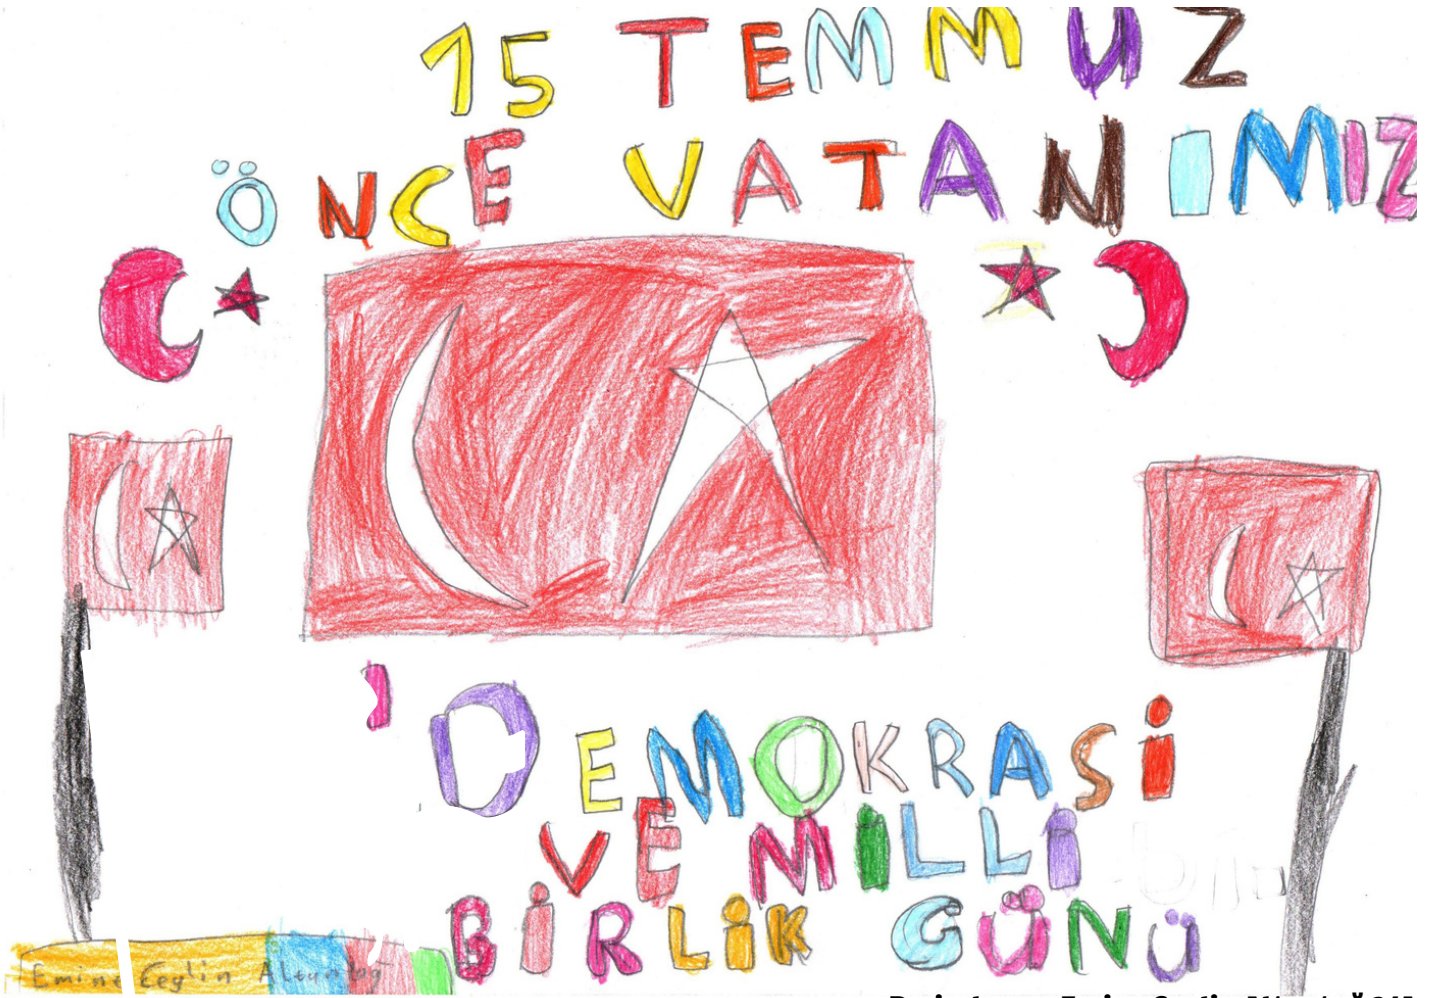 15 TEMMUZ
ÖNCE VATANIMIZ
DEMOKRASİ
VE MİLLİ
BİRLİK GÜNÜ
Emine Ceylin